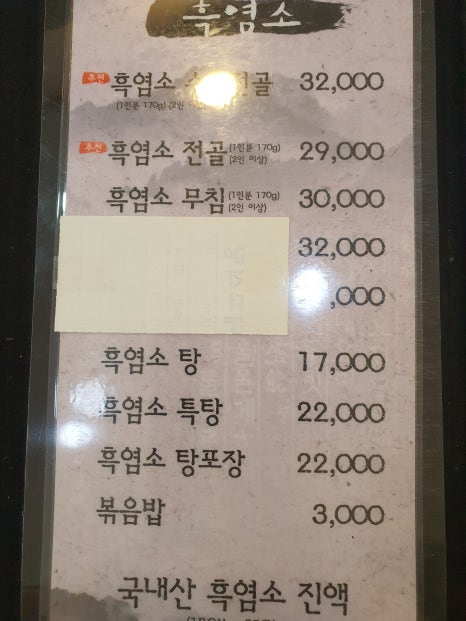 흑염소
추천 흑염소 전골 32,000
(1인분 170g)
추천 흑염소 전골 (1인분 170g) (2인 이상) 29,000
흑염소 무침 (1인분 170g) (2인 이상) 30,000
32,000
,000
흑염소 탕 17,000
흑염소 특탕 22,000
흑염소 탕포장 22,000
볶음밥 3,000
국내산 흑염소 진액